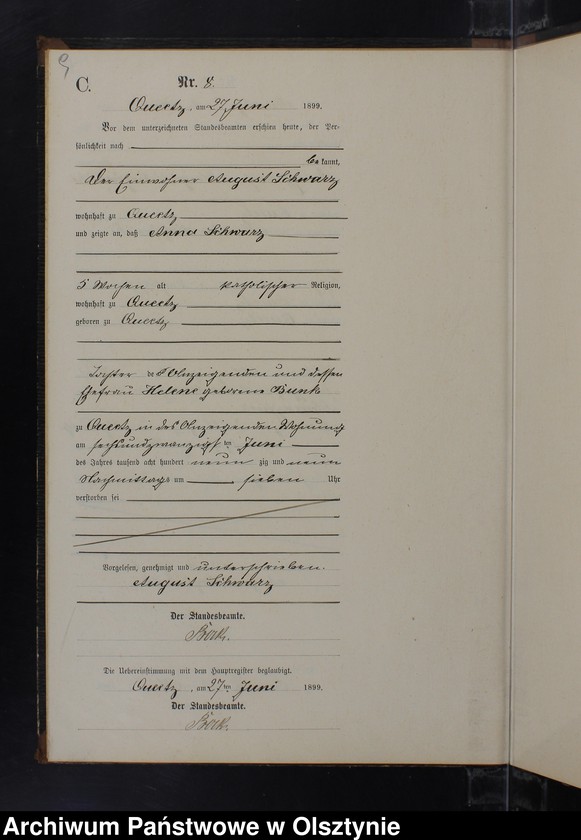 C.
Nr. 8.
Queetz, am 27 Juni 1899.
Vor dem unterzeichneten Standesbeamten erschien heute, der Per-
sönlichkeit nach
bekannt,
Der Einwohner August Schwarz
wohnhaft zu Queetz
und zeigte an, daß Anna Schwarz
5 Wochen alt katholischer Religion,
wohnhaft zu Queetz
geboren zu Queetz
Tochter des Anzeigenden und dessen
Ehefrau Helene geborene Bunk
zu Queetz in des Anzeigenden Wohnung
am sechsundzwanzigsten Juni
des Jahres tausend acht hundert neun zig und neun
Nachmittags um sieben Uhr
verstorben sei
Vorgelesen, genehmigt und unterschrieben.
August Schwarz
Der Standesbeamte.
Die Uebereinstimmung mit dem Hauptregister beglaubigt.
Queetz, am 27ten Juni 1899.
Der Standesbeamte.
Archiwum Państwowe w Olsztynie